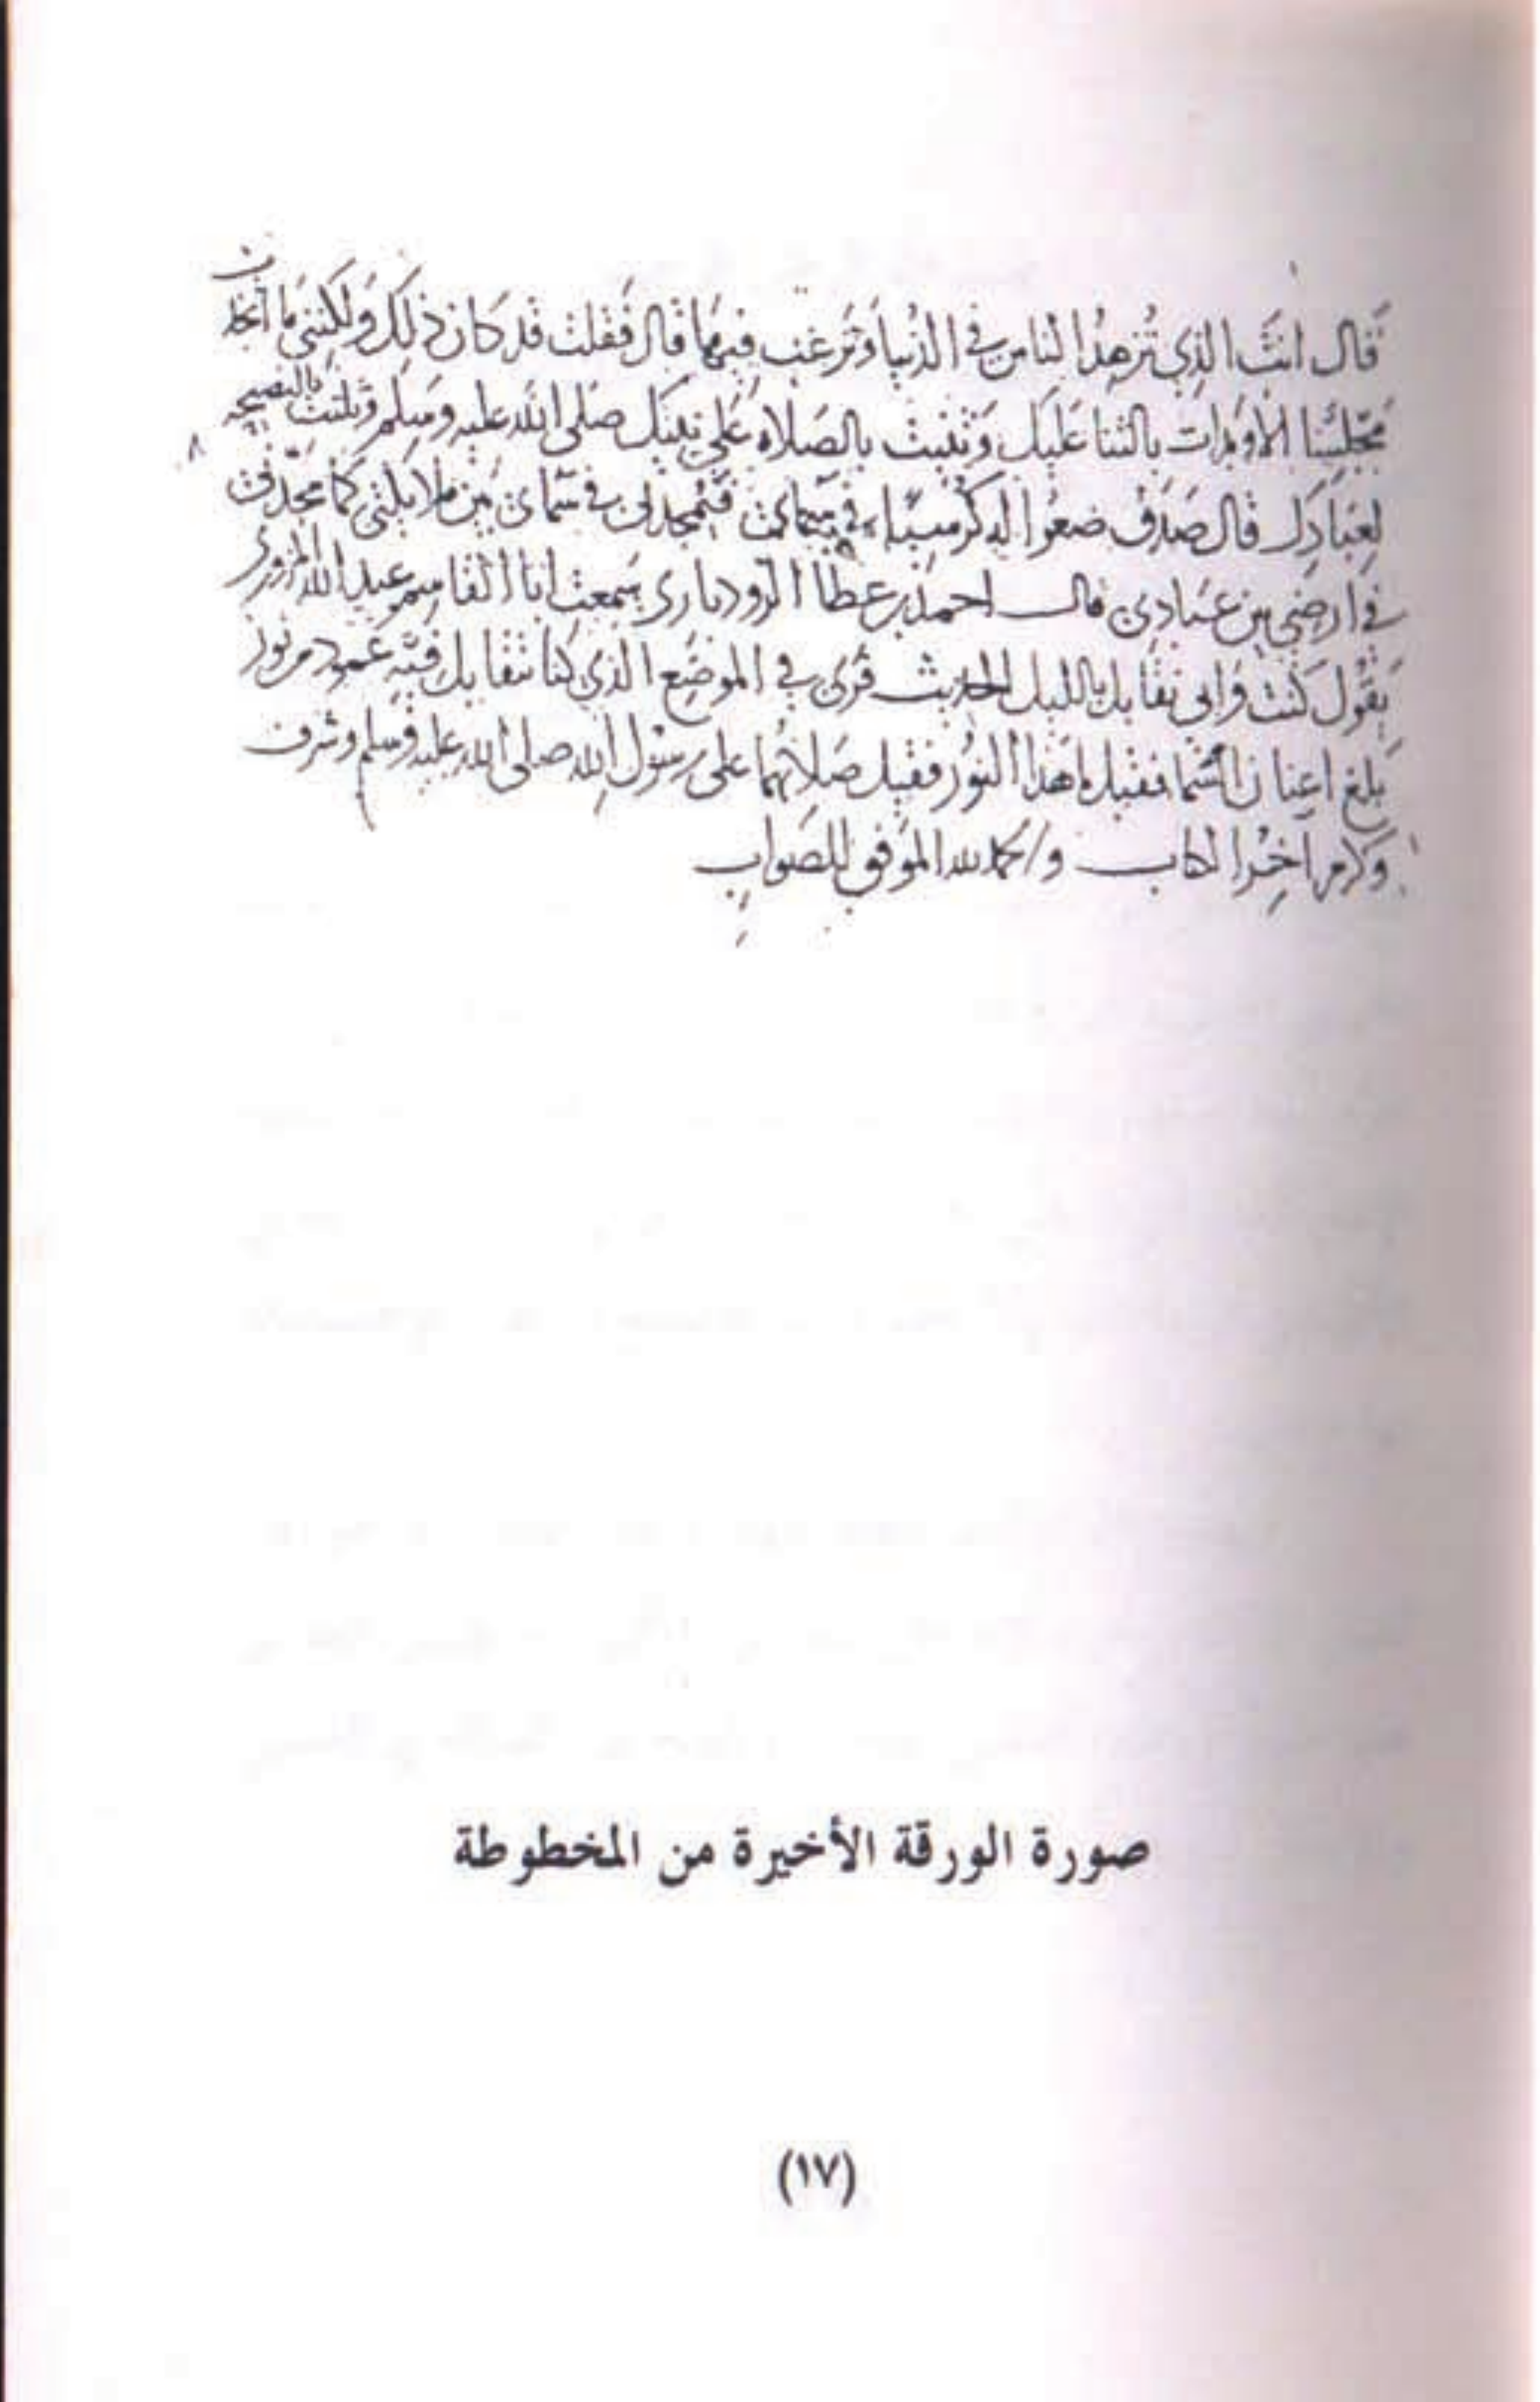 قَال انتَ الذِي تُزهِدُ الناس في الدُنيا وَتَرغَب فيهَا قال فَقلت قد كَان ذلِكَ وَلكِنني مَا اتخذت
مَجلِسًا الا وبدات بالثنا عَليك وَثنيت بالصَلاه عَلى نبيك صَلى الله عليه وسَلم وثلثت بالنصيحه
لِعِبَادِك قال صَدَق ضعُوا له كُرسيًا في سمائى فيُمجدنى في سَمائى بَين ملايكتى كما مجّدنى
في ارضِي بين عبَادِي قال احمد بن عطا الروذبارى سَمعت ابا القاسم عبد الله المروزى
يَقول كنت وابى نقابل بالليل الحديث فرُئ في الموضع الذي كنا نتقابل فيه عمود من نور
بَلغ اعنان السَّمَا فقيل ما هَذا النُور فقيل صَلاتهما على رسول الله صلى الله عليه وسلم وشرف
وكرم اخِرُ الكتاب والحمد لله الموَفق للصَوابِ
صورة الورقة الأخيرة من المخطوطة
(١٧)